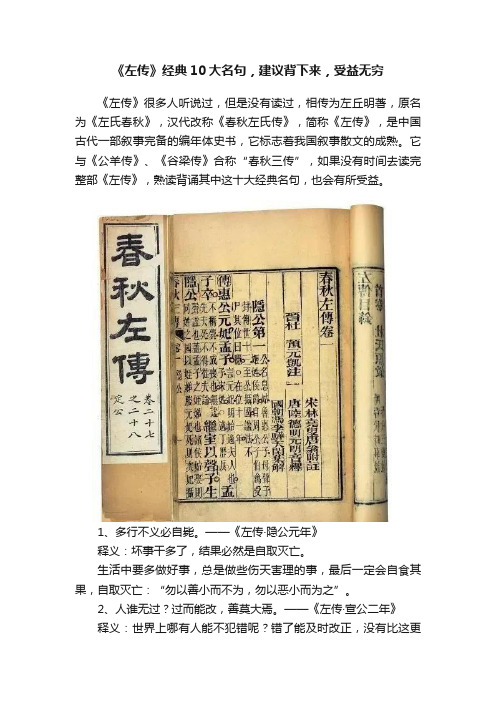 《左传》经典10大名句，建议背下来，受益无穷
《左传》很多人听说过，但是没有读过，相传为左丘明著，原名
为《左氏春秋》，汉代改称《春秋左氏传》，简称《左传》，是中国
古代一部叙事完备的编年体史书，它标志着我国叙事散文的成熟。它
与《公羊传》、《谷梁传》合称“春秋三传”，如果没有时间去读完
整部《左传》，熟读背诵其中这十大经典名句，也会有所受益。
春秋左傳
卷二十七
之二十八
定公
春秋左傳卷一
晉杜
凱注
宋林堯叟唐翁附註
唐陸德明元朗音釋
隱公第一
傳惠公元妃孟子
孟
子卒
繼室以聲子生
隱公
1、多行不义必自毙。——《左传·隐公元年》
释义：坏事干多了，结果必然是自取灭亡。
生活中要多做好事，总是做些伤天害理的事，最后一定会自食其
果，自取灭亡：“勿以善小而不为，勿以恶小而为之”。
2、人谁无过？过而能改，善莫大焉。——《左传·宣公二年》
释义：世界上哪有人能不犯错呢？错了能及时改正，没有比这更